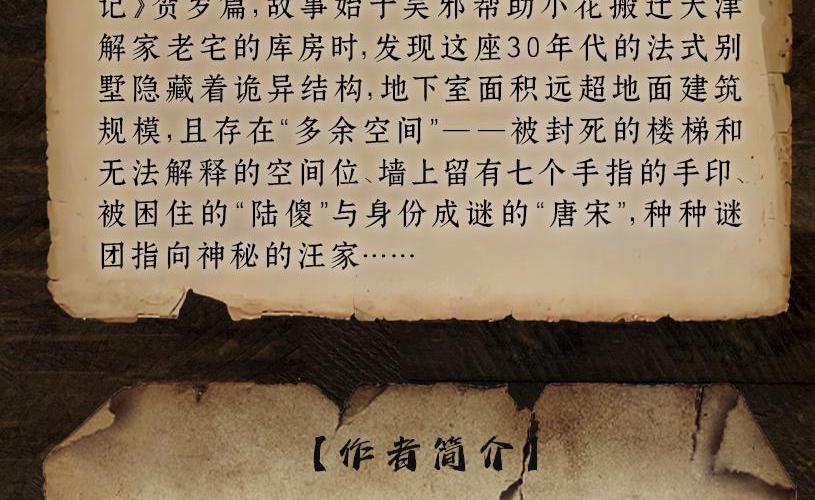 记》贺岁篇，故事始于吴邪帮助小花搬迁天津
解家老宅的库房时，发现这座30年代的法式别
墅隐藏着诡异结构，地下室面积远超地面建筑
规模，且存在“多余空间”——被封死的楼梯和
无法解释的空间位、墙上留有七个手指的手印、
被困住的“陆傻”与身份成谜的“唐宋”，种种谜
团指向神秘的汪家……
【作者简介】